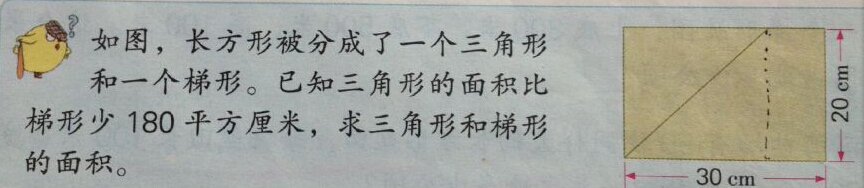 如图，长方形被分成了一个三角形
和一个梯形。已知三角形的面积比
梯形少 180 平方厘米，求三角形和梯形
的面积。
?
20 cm
30 cm